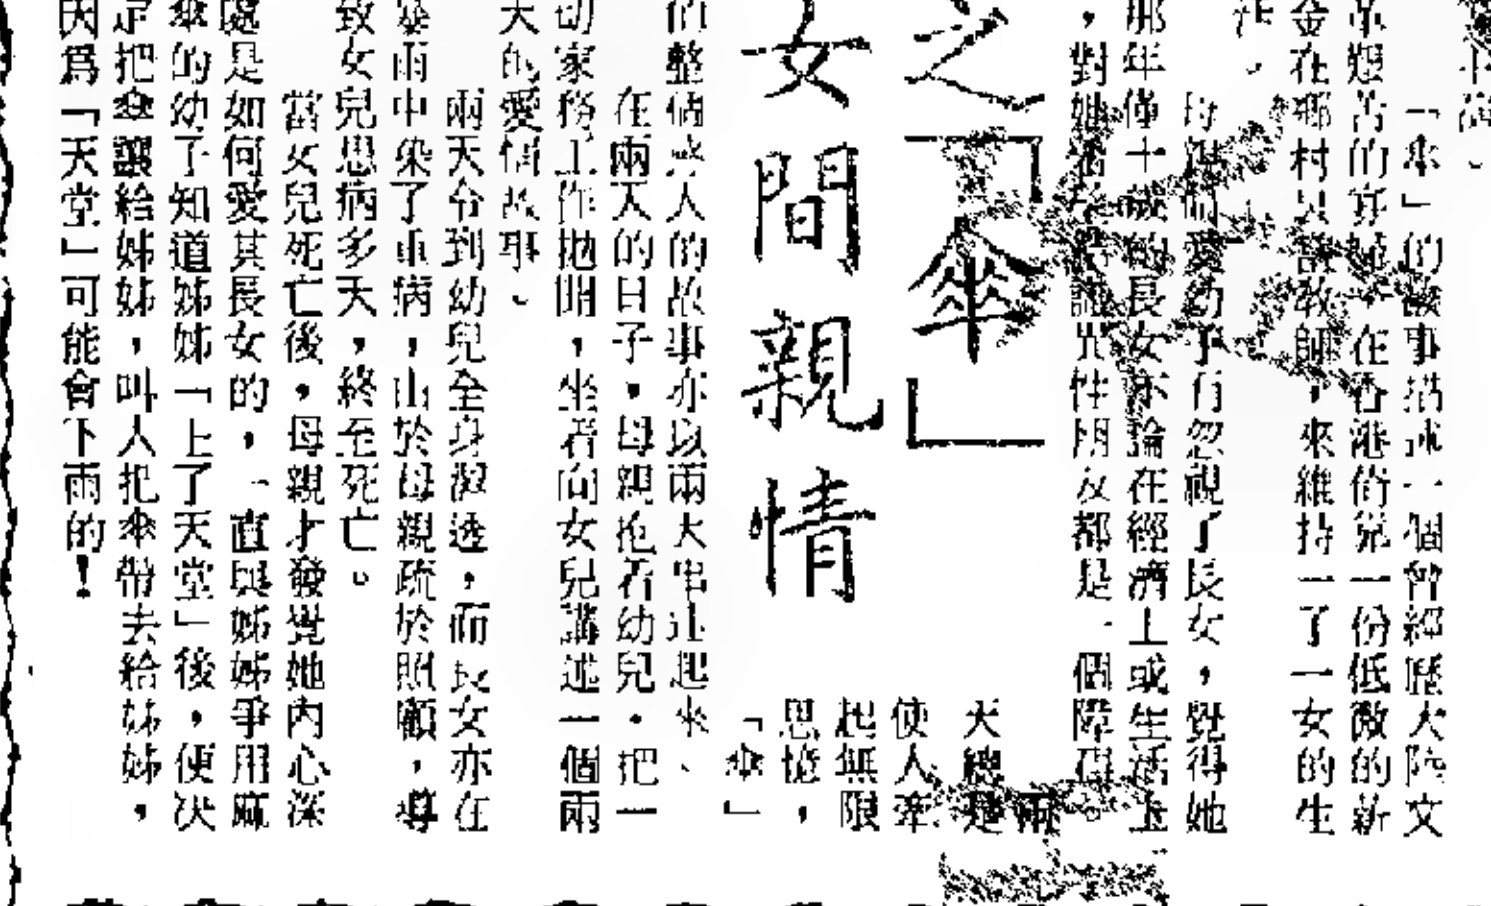 「傘」的故事描述一個曾經歷大陸文
革艱苦的寡婦，在香港俗第一份低微的薪
金在鄉村 教師，來維持一了一女的生
活。
母親 愛幼子有忽視了長女，覺得她
那年僅十 歲的長女亦論在經濟上或生活上
，對她 性朋友都是一個障碍。
雨
天總是
使人牽
起無限
思憶，
「傘」
之「傘」
女間親情
的整個感人的故事亦以雨天串連起來、
在雨天的日子，母親抱着幼兒．把一
切家務工作拋開，坐着向女兒講述一個雨
天的愛情故事。
雨天令到幼兒全身濕透，而長女亦在
暴雨中染了重病，由於母親疏於照顧，導
致女兒思病多天，終至死亡。
當女兒死亡後，母親才發覺她內心深
處是如何愛其長女的，一直與姊姊爭用麻
傘的幼子知道姊姊「上了天堂」後，便决
定把傘讓給姊姊，叫人把傘帶去給姊姊，
因爲「天堂」可能會下雨的！